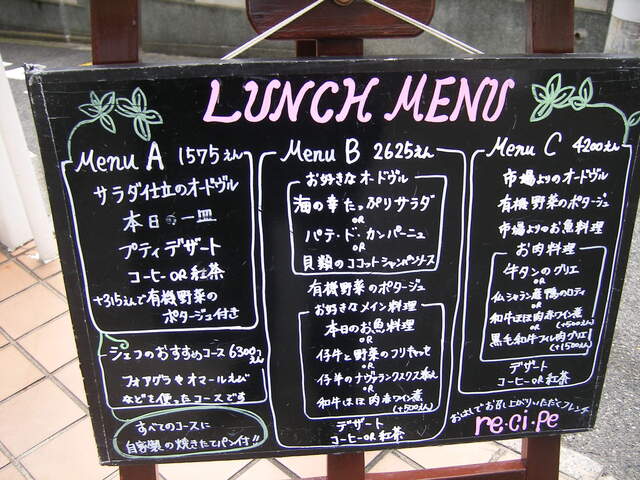 LUNCH MENU
Menu A 1575えん
サラダ仕立のオードヴル
本日の一皿
プティデザート
コーヒー OR 紅茶
+315えんで有機野菜の
ポタージュ付き
シェフのおすすめコース 6300えん
フォアグラやオマールえび
などを使ったコースです
すべてのコースに
自家製の焼きたてパン付!!
Menu B 2625えん
お好きなオードヴル
海の幸たっぷりサラダ
OR
パテ・ド・カンパーニュ
OR
貝類のココットシャンパンソース
有機野菜のポタージュ
お好きなメイン料理
本日のお魚料理
OR
仔牛と野菜のフリカッセ
OR
仔羊のナヴァラン
OR
和牛ほほ肉赤ワイン煮
(+500えん)
デザート
コーヒー OR 紅茶
Menu C 4200えん
市場よりのオードヴル
有機野菜のポタージュ
市場よりのお魚料理
お肉料理
牛タンのグリエ
OR
仏シャラン産鴨のロティ
OR
和牛ほほ肉赤ワイン煮
(+500えん)
OR
黒毛和牛フィレ肉グリエ!
(+1500えん)
デザート
コーヒー OR 紅茶
おはしでお召し上がりいただくフレンチ
re・ci・pe